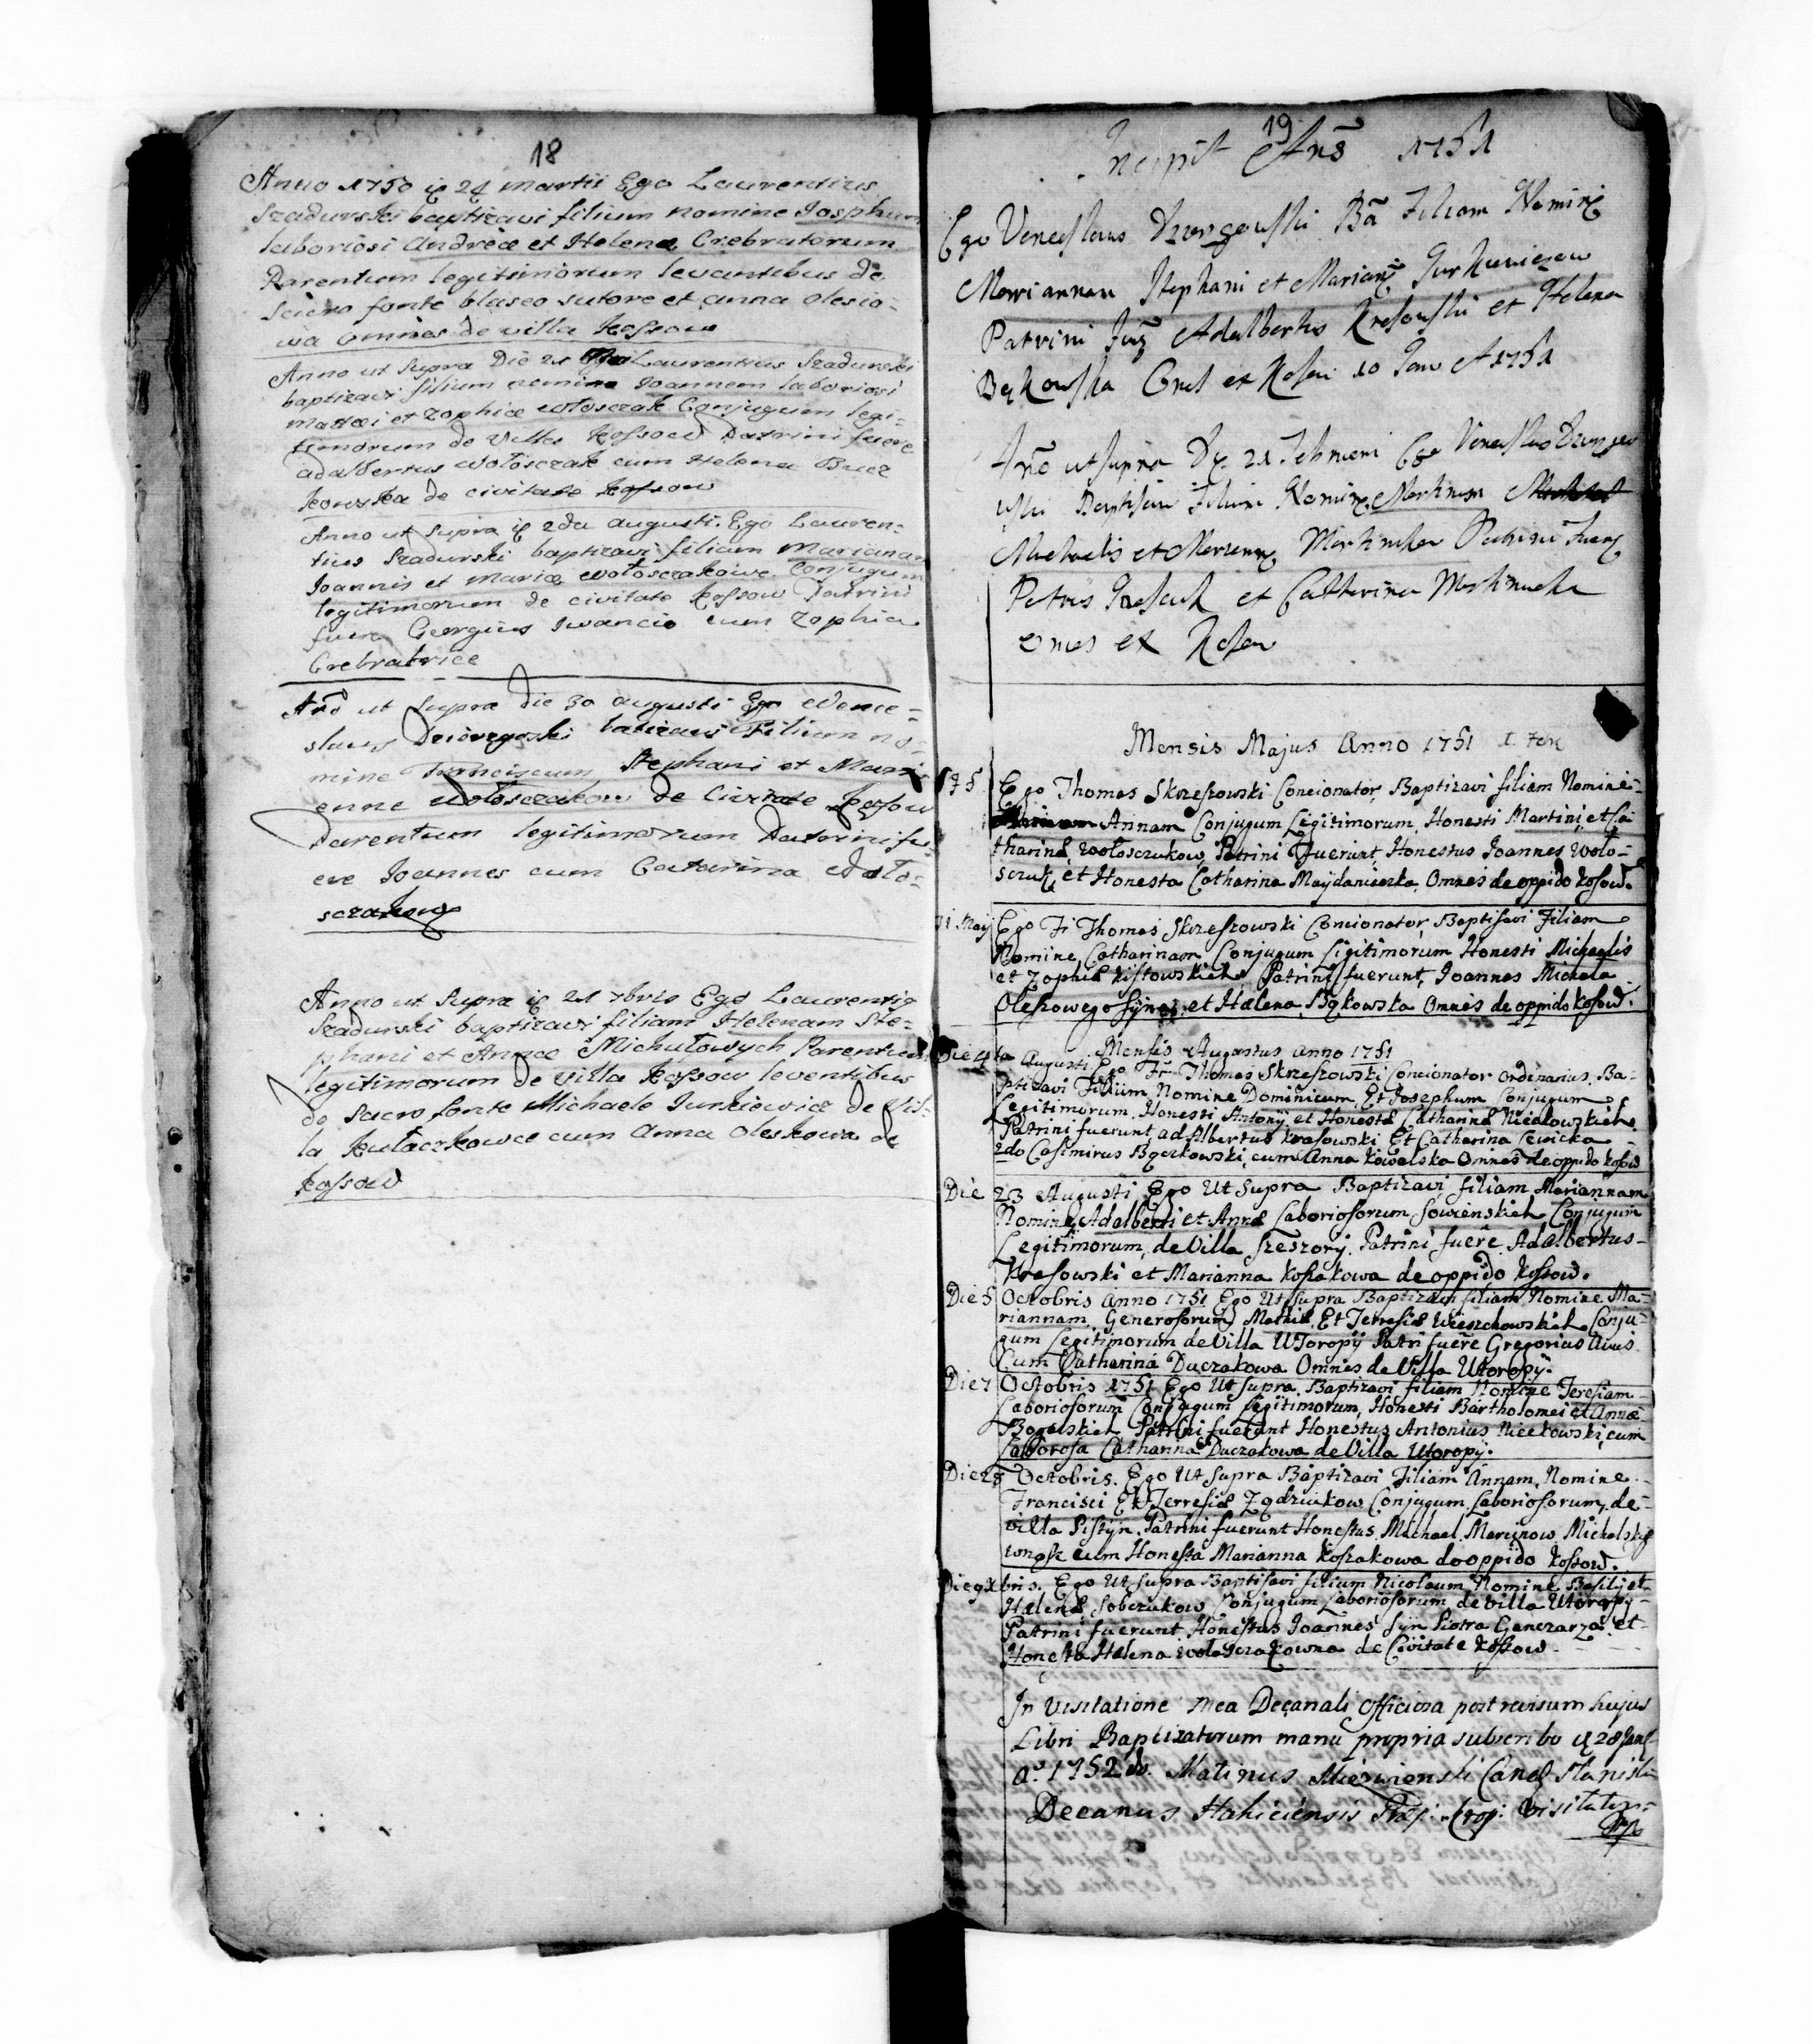 18
Anno 1750 24 martii Ego Laurentius
Szadurski baptizavi filium nomine Josphum
laboriosi Andreæ et Helenæ Crebratorum
Parentum legitimorum levantibus de
sacro fonte blaseo sutore et anna olesio-
wa omnes de villa Kossow
Anno ut supra Die 21 Ego Laurentius Szadurski
baptizavi filium nomine Joannem laboriosi
Mattæi et Zophiæ Wołosczak Conjugum legi-
timorum de Villa Kossow Patrini fuere
adalbertus Wołosczak cum Helena
kowska de civitate Kossow
Anno ut supra 2da augusti. Ego Lauren-
tius Szadurski baptizavi filiam Mariana
Joannis et Mariæ Wołosczakowe Conjugum
legitimorum de civitate Kossow Patrini
fuere Georgius Iwancio cum Zophia
Crebratrice
Año ut supra die 30 augusti Ego Wence-
slaus Dziorgoski batizavi Filium no-
mine Franciscum Stephani et Mari
enne Wołosczakow de Civitate Kossow
Parentum legitimorum Patrini fu-
ere Joannes cum Catarina Woło-
sczakowa
Anno ut supra 21 7bris Ego Laurentis
Szadurski baptizavi filiam Helenam Ste-
phani et Annæ Michułowych Parentum
legitimorum de villa Kossow leventibus
de sacro fonte Michaele Jurkiewicz de Vil-
la Kułaczkowce cum Anna Oleskowa de
Kossow
19
Incipit Año 1751
Ego Venceslaus Dziorgowski Bã Filiam Nomine
Mariannam Stephani et Marianę Jurkiewiczow
Patrini Adalbertus Kresowski et Helena
Bękowska Omes ex Kosow 10 Jan A 1751
Año ut supra D. 21 Februarii Ego
Filium Nomine Martinum
Michaelis et Patrini Fuere
Petrus et Catherina
omes ex Kosow
Mensis Majus Anno 1751
Ego Thomas Skrzeszowski Concionator Baptizavi filiam Nomine-
Annam Conjugum Legitimorum, Honesti Martini et Ca
tharinæ Wołosczukow, Patrini Fuerunt Honestus Joannes Woło-
sczuk, et Honesta Catharina Maydaniczka Omnes de oppido Kosow.
31 May Ego Fr Thomas Skrzeszowski Concionator Baptisavi Filiam
Nomine Catharinam Conjugum Ligitimorum Honesti Michaelis
et Zophiæ Kistowskich Patrini fuerunt, Joannes Michała
Oleszowego synem et Hælena Bękowska Omnes de oppido Kosow.
Mensis Augustus Anno 1751
Die 4ta Augusti Ego Fr Thomas Skrzeszowski Concionator Ordinarius Ba-
ptizavi Filium Nomine Dominicum Et Josephum Conjugum
Legitimorum, Honesti Antonij et Honestæ Catharinæ Niedowskich
Patrini fuerunt adAlbertus Krasowski Et Catharina Lewicka
2do Casimirus Bączkowski, cum Anna Kowalska Omnes de oppido Kosow
Die 23 Augusti Ego Ut Supra Baptizavi filiam Mariannam
Nomine, Adalberti et Annæ Laboriosorum Sowienskich Conjugum
Legitimorum, de Villa Szeszory. Patrini fuere Adalbertus-
Kresowski et Marianna Koszakowa de oppido Kossow.
Die 5 Octobris Anno 1751 Ego Ut supra Baptizavi filiam Nomine Ma-
riannam, Generosorum Mathiæ Et Terresiæ Wieszchowskich Conju-
gum Legitimorum de Villa UToropij Patri fuere Gregorius Avus
Cum Catharina Duczakowa Omnes de Villa Utoropij.
Die 7 Octobris 1751 Ego Ut supra Baptizavi filiam Nomine Teresiam
Laboriosorum Conjugum Legitimorum, Honesti Bartholomei et Annæ
Patrini fuerunt Honestus Antonius Nieckowski, cum
Laboriosa Catharina Duczakowa de Villa Utoropij.
Die 28 Octobris. Ego Ut supra Baptizavi Filiam Annam, Nomine
Francisci Et Terresiæ Conjugum Laboriosorum, de-
villa Pistyn. Patrini fuerunt Honestus Michael
cum Honesta Marianna Koszakowa de oppido Kossow.
Die 9 Xbris. Ego Ut supra Baptisavi filium Nicolaum Nomine, Basilij et-
Hælenæ Sobczukow Conjugum Laboriosorum de villa Utoropy-
Patrini fuerunt Honestus Joannes Syn Piotra Ganczarza et
Honesta Hælena Wołosczakowna de Civitate Kossow
In Visitatione mea Decanali Officiosa post revisum hujus
Libri Baptizatorum manu propria subscribo 28
Aº 1752do. Matinus Mierwienski
Decanus Haliciensis Visitator